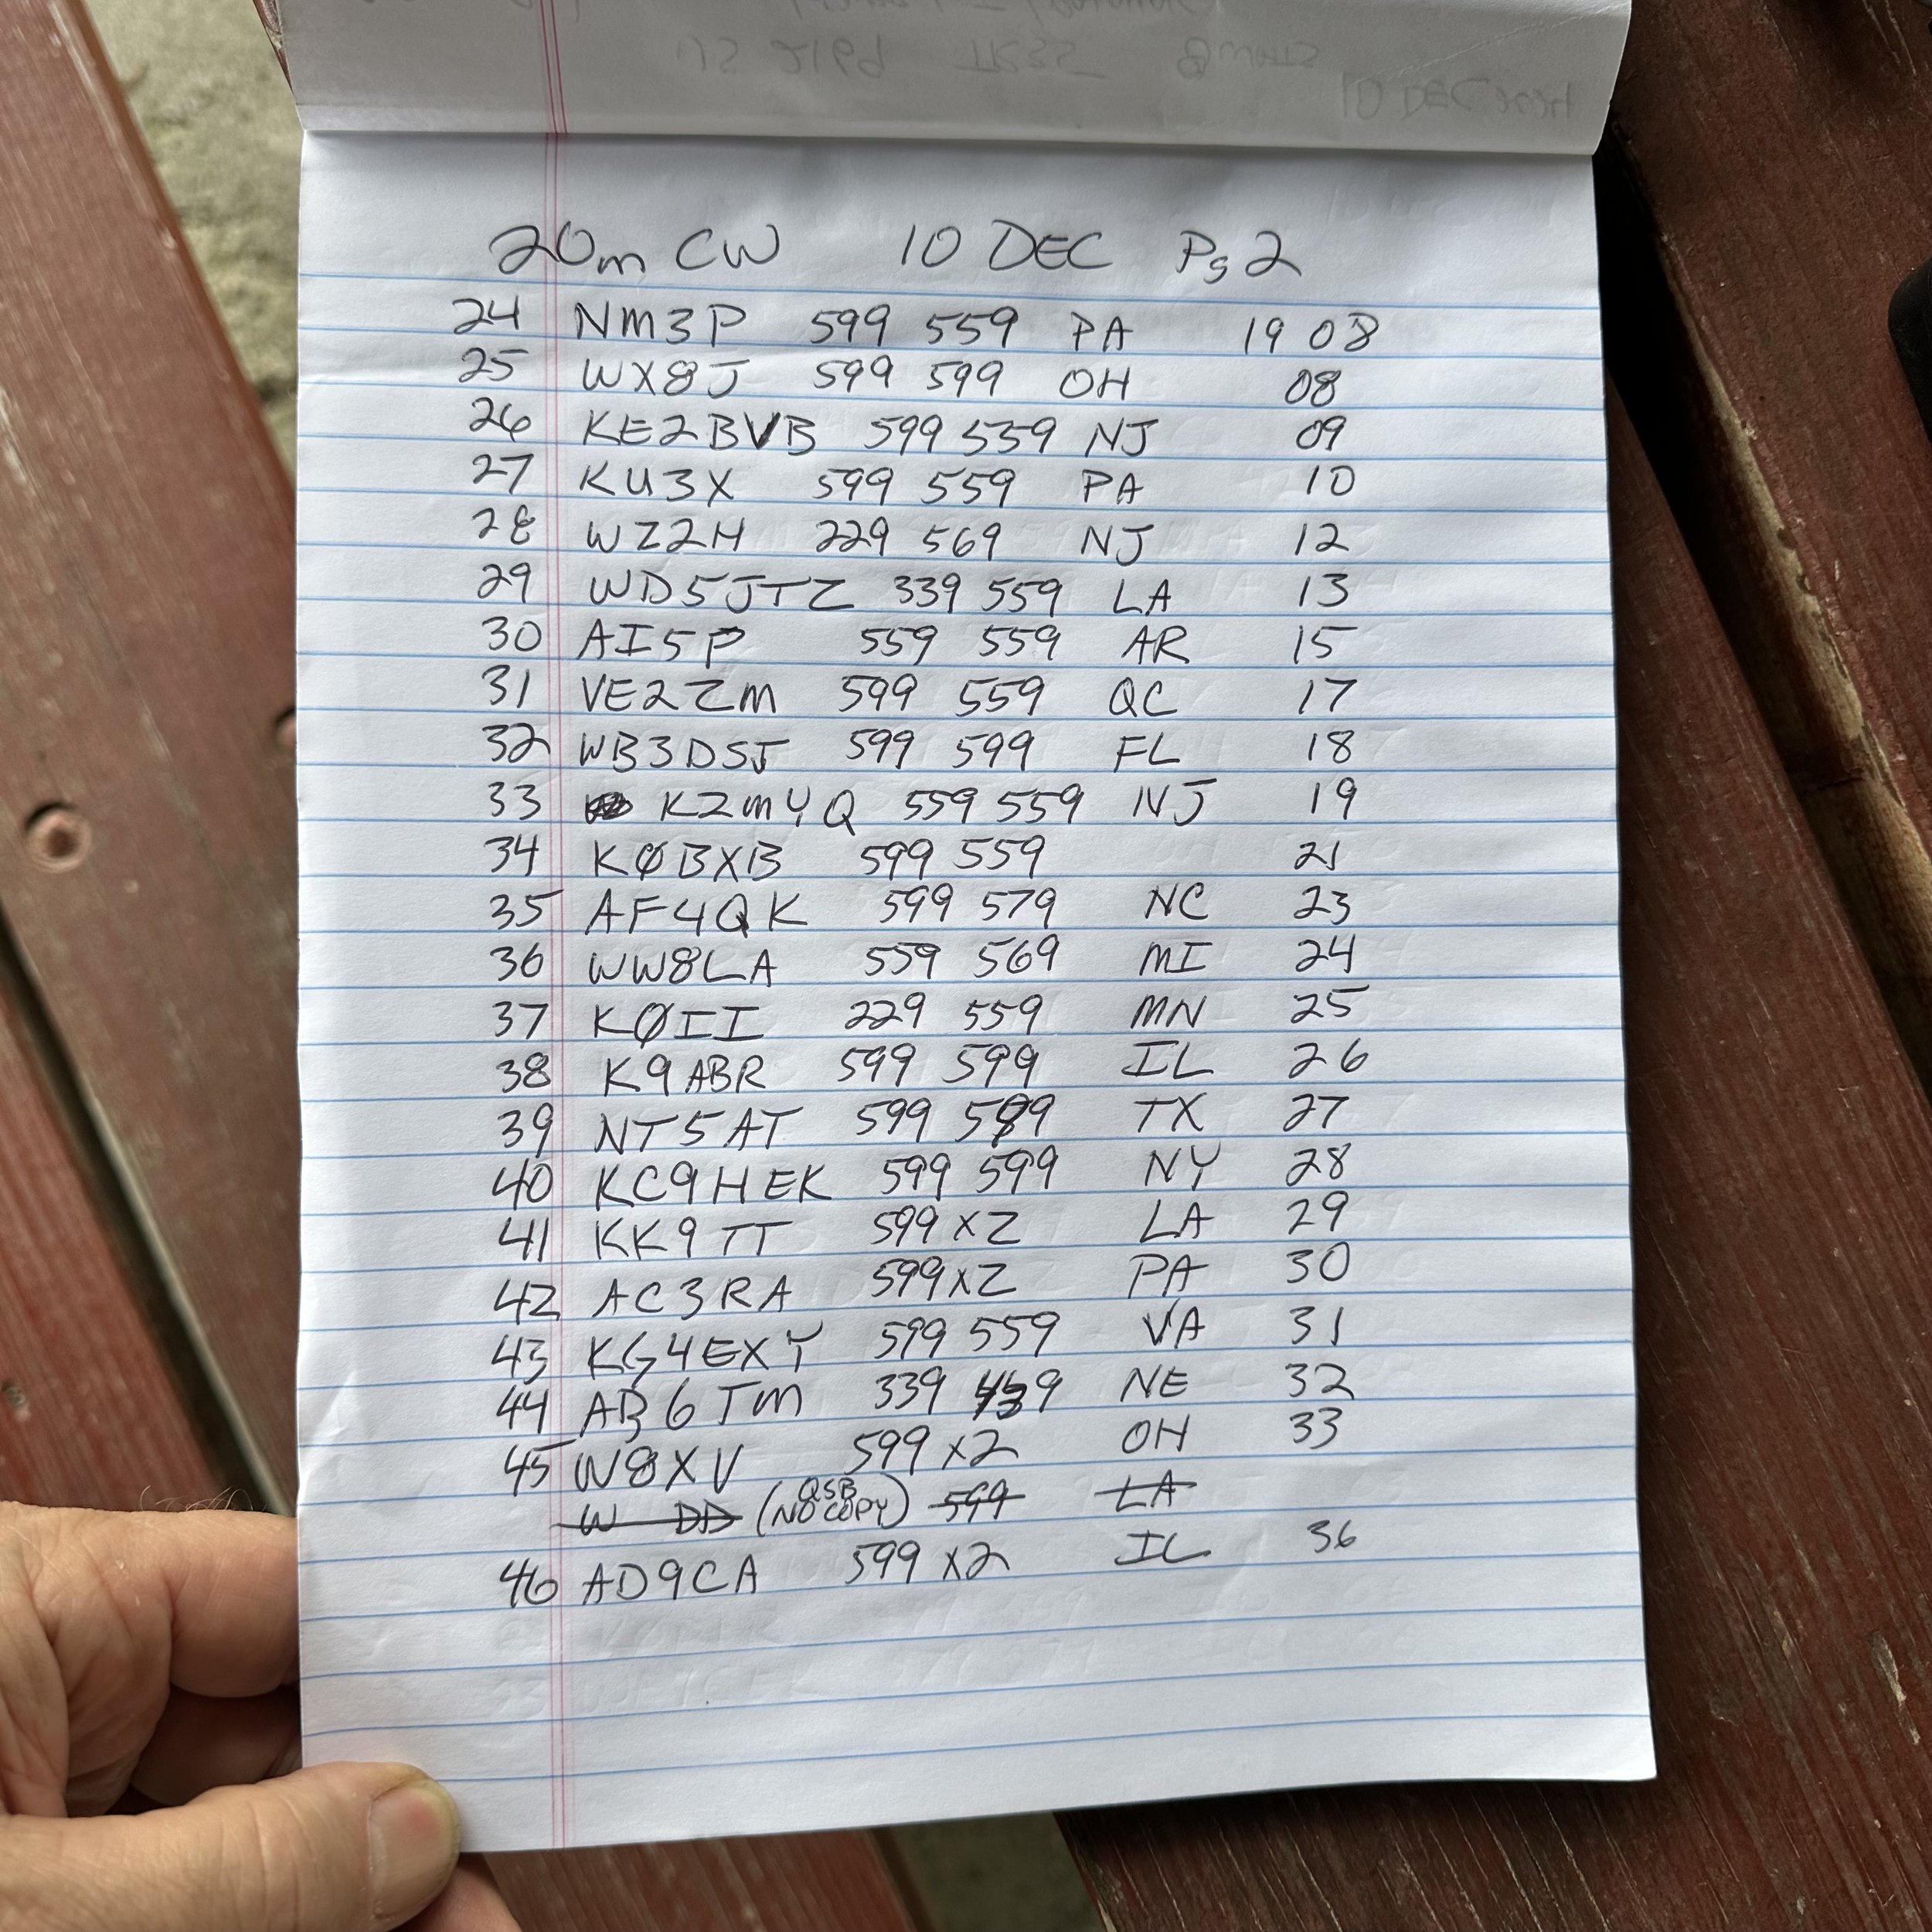 20m CW 10 DEC Pg 2
24 NM3P 599 559 PA 19 08
25 WX8J 599 599 OH 08
26 KE2BVB 599 539 NJ 09
27 KU3X 599 559 PA 10
28 WZ2H 229 569 NJ 12
29 WD5JTZ 339 559 LA 13
30 AI5P 559 559 AR 15
31 VE2ZM 599 559 QC 17
32 WB3DSJ 599 599 FL 18
33 K2MYQ 559 559 NJ 19
34 KØBXB 599 559 21
35 AF4QK 599 579 NC 23
36 WW8LA 559 569 MI 24
37 KØII 229 559 MN 25
38 K9ABR 599 599 IL 26
39 NT5AT 599 589 TX 27
40 KC9HEK 599 599 NY 28
41 KK9TT 599 x2 LA 29
42 AC3RA 599 x2 PA 30
43 KG4EXY 599 559 VA 31
44 AB6TM 339 NE 32
45 W8XV 599 x2 OH 33
W DD (QSB NO COPY) 599 LA
46 AD9CA 599 x2 IL 36